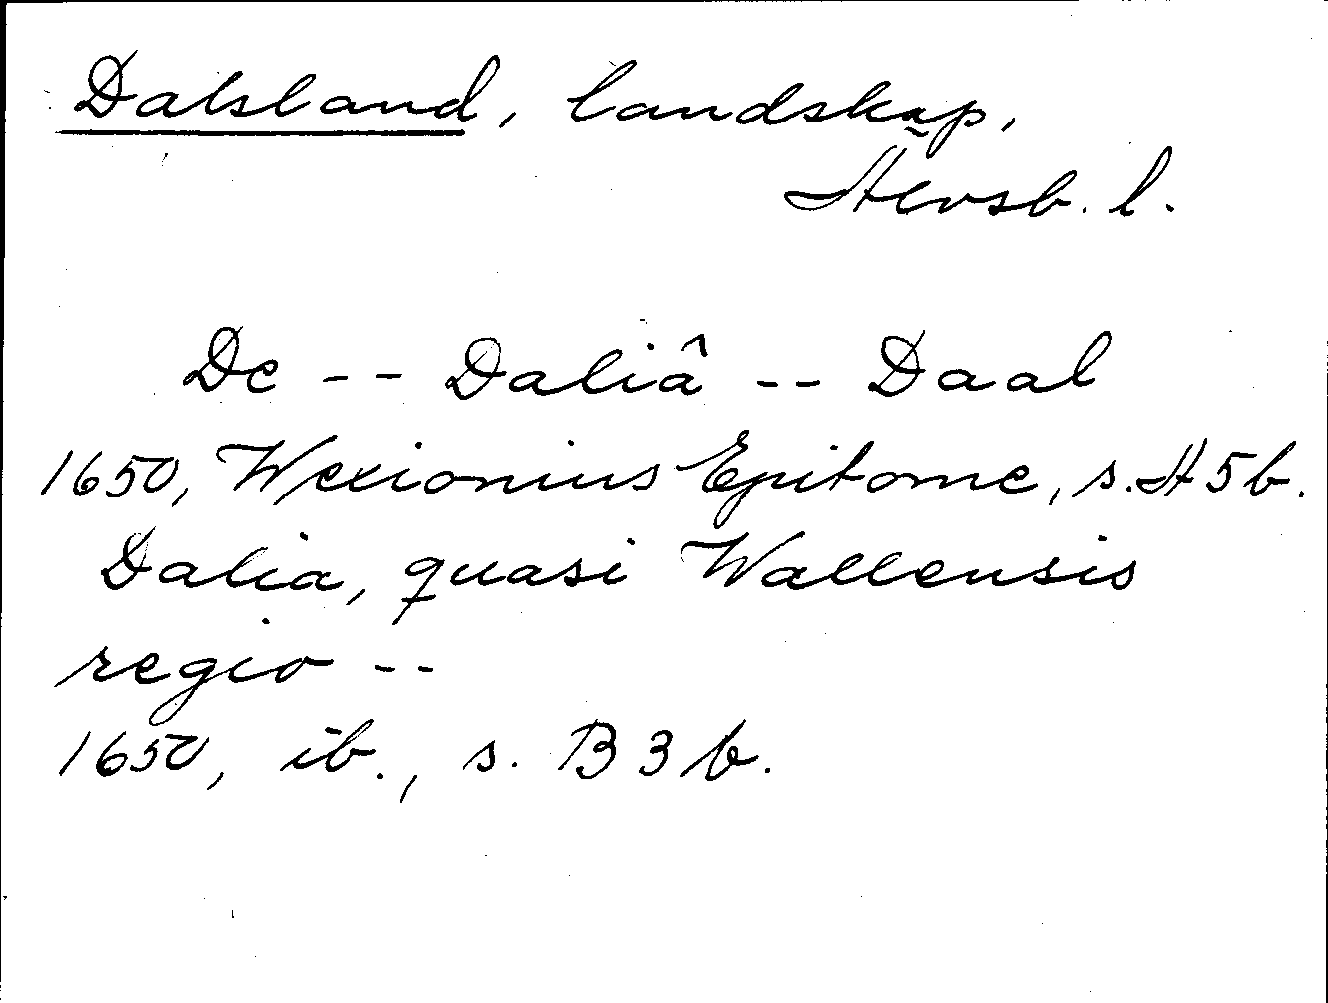 Dalsland, landskap,
Älvsb. l.
De -- Daliâ -- Daal
1650, Wexionius Epitome, s. A 5 b.
Dalia, quasi Wallensis
regio --
1650, ib., s. B 3 b.